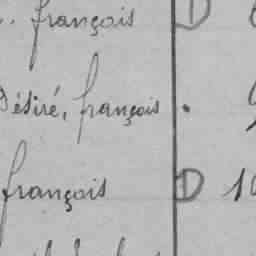 françois D
Désiré, françois .
françois D 10